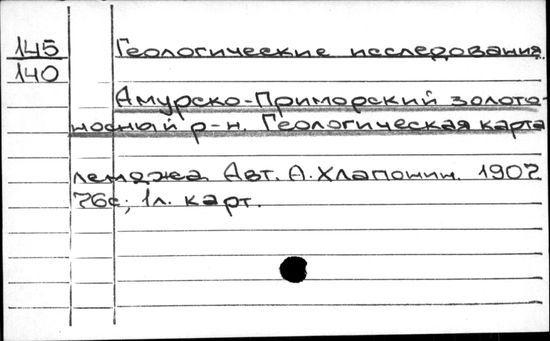 145 Геологические исследования
140
Амурско-Приморский золото-
носный р-н. Геологическая карта
Авт. А. Хлапонин. 1907
76с; 1л. карт.